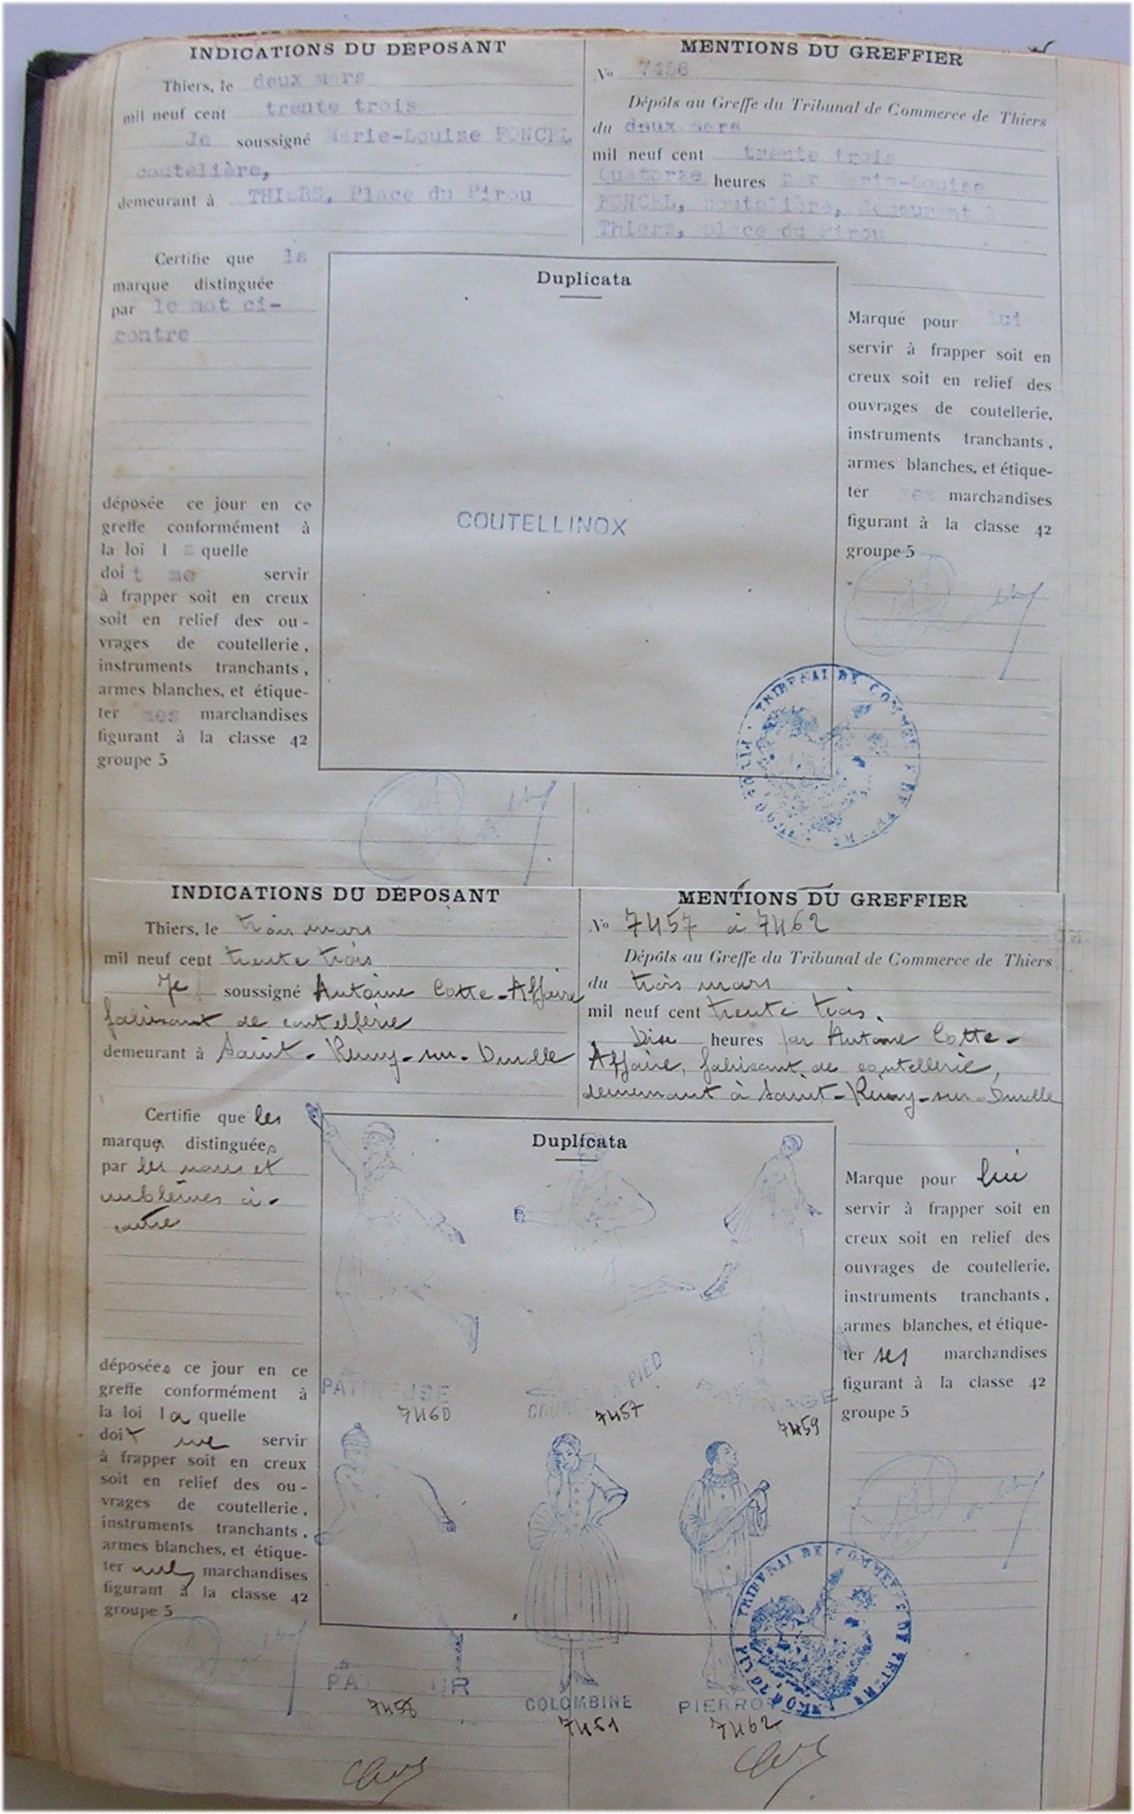 INDICATIONS DU DÉPOSANT
Thiers, le deux mars
mil neuf cent trente trois
Je soussigné Marie-Louise PONCEL
coutelière,
demeurant à THIERS, Place du Pirou
MENTIONS DU GREFFIER
No 7456
Dépôts au Greffe du Tribunal de Commerce de Thiers
du deux mars
mil neuf cent trente trois
Quatorze heures par Marie-Louise
PONCEL, coutelière, demeurant à
Thiers, place du Pirou
Certifie que la
marque distinguée
par le mot ci-
contre
déposée ce jour en ce
greffe conformément à
la loi la quelle
doit me servir
à frapper soit en creux
soit en relief des ou-
vrages de coutellerie,
instruments tranchants,
armes blanches, et étique-
ter mes marchandises
figurant à la classe 42
groupe 5
Duplicata
COUTELLINOX
Marque pour lui
servir à frapper soit en
creux soit en relief des
ouvrages de coutellerie,
instruments tranchants,
armes blanches, et étique-
ter ses marchandises
figurant à la classe 42
groupe 5
TRIBUNAL DE COMMERCE DE THIERS
INDICATIONS DU DÉPOSANT
Thiers, le trois mars
mil neuf cent trente trois
Je soussigné Antoine Cotte-Affaire
fabricant de coutellerie
demeurant à Saint-Remy-sur-Durolle
MENTIONS DU GREFFIER
No 7457 à 7462
Dépôts au Greffe du Tribunal de Commerce de Thiers
du trois mars
mil neuf cent trente trois.
Dix heures par Antoine Cotte-
Affaire, fabricant de coutellerie,
demeurant à Saint-Rémy-sur-Durolle
Certifie que les
marques distinguées
par les noms et
emblèmes ci-
contre
déposées ce jour en ce
greffe conformément à
la loi la quelle
doit me servir
à frapper soit en creux
soit en relief des ou-
vrages de coutellerie,
instruments tranchants,
armes blanches, et étique-
ter mes marchandises
figurant à la classe 42
groupe 5
Duplicata
PATINEUSE
7460
A PIED
7457
7459
7458
COLOMBINE
7461
PIERROT
7462
Marque pour lui
servir à frapper soit en
creux soit en relief des
ouvrages de coutellerie,
instruments tranchants,
armes blanches, et étique-
ter ses marchandises
figurant à la classe 42
groupe 5
TRIBUNAL DE COMMERCE DE THIERS